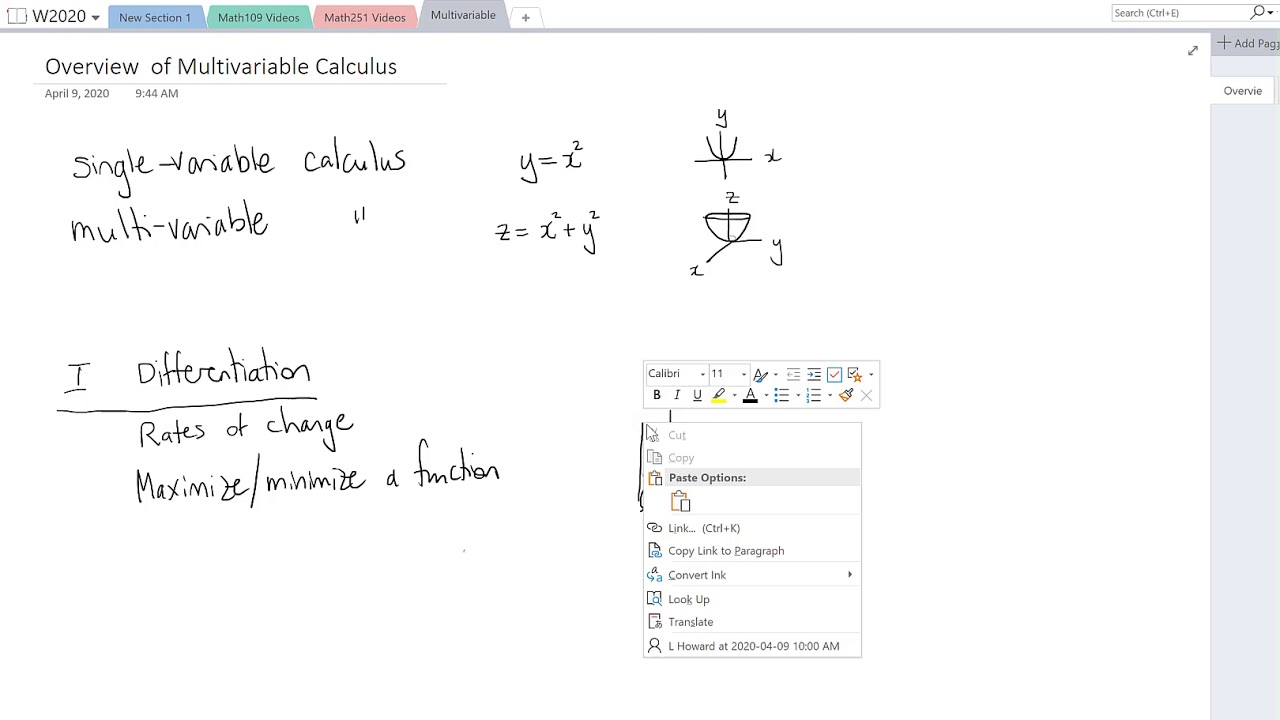 W2020
New Section 1
Math109 Videos
Math251 Videos
Multivariable
+
Search (Ctrl+E)
Add Pag
Overvie
Overview of Multivariable Calculus
April 9, 2020 9:44 AM
single-variable calculus y = x² y x
multi-variable " z = x² + y² z y x
I Differentiation
Rates of change
Maximize/minimize a function
Calibri 11
B I U A
Cut
Copy
Paste Options:
Link... (Ctrl+K)
Copy Link to Paragraph
Convert Ink
Look Up
Translate
L Howard at 2020-04-09 10:00 AM